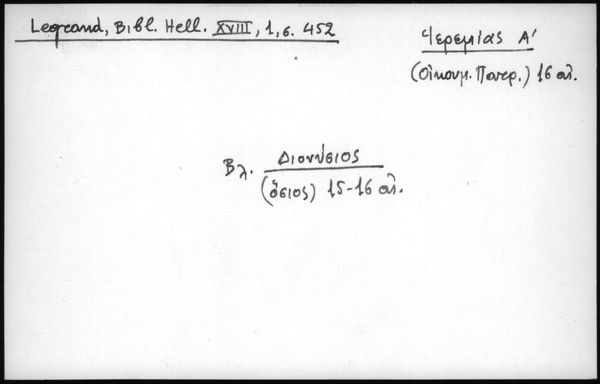 Legrand, Bibl. Hell. XVIII, 1, σ. 452
Ἱερεμίας Α'
(Οἰκουμ. Πατρ.) 16 αἰ.
Βλ. Διονύσιος
(ὅσιος) 15-16 αἰ.